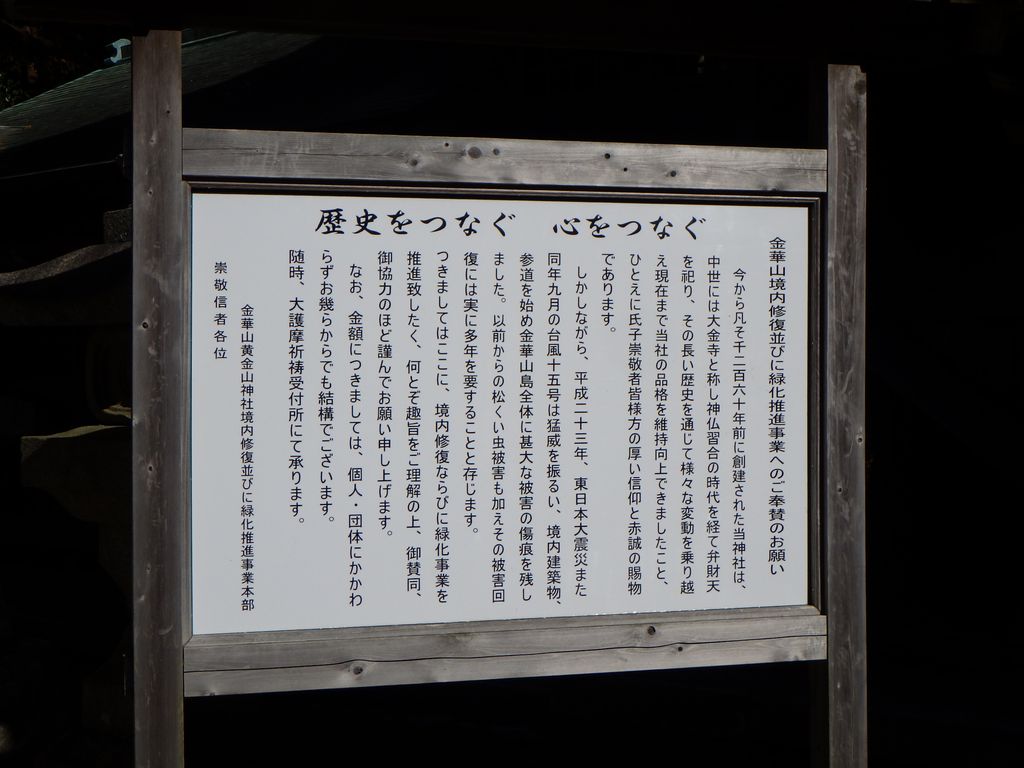 歴史をつなぐ　心をつなぐ
金華山境内修復並びに緑化推進事業へのご奉賛のお願い
今から凡そ千二百六十年前に創建された当神社は、
中世には大金寺と称し神仏習合の時代を経て弁財天
を祀り、その長い歴史を通じて様々な変動を乗り越
え現在まで当社の品格を維持向上できましたこと、
ひとえに氏子崇敬者皆様方の厚い信仰と赤誠の賜物
であります。
しかしながら、平成二十三年、東日本大震災また
同年九月の台風十五号は猛威を振るい、境内建築物、
参道を始め金華山島全体に甚大な被害の傷痕を残し
ました。以前からの松くい虫被害も加えその被害回
復には実に多年を要することと存じます。
つきましてはここに、境内修復ならびに緑化事業を
推進致したく、何とぞ趣旨をご理解の上、御賛同、
御協力のほど謹んでお願い申し上げます。
なお、金額につきましては、個人・団体にかかわ
らずお幾らからでも結構でございます。
随時、大護摩祈祷受付所にて承ります。
金華山黄金山神社境内修復並びに緑化推進事業本部
崇敬信者各位